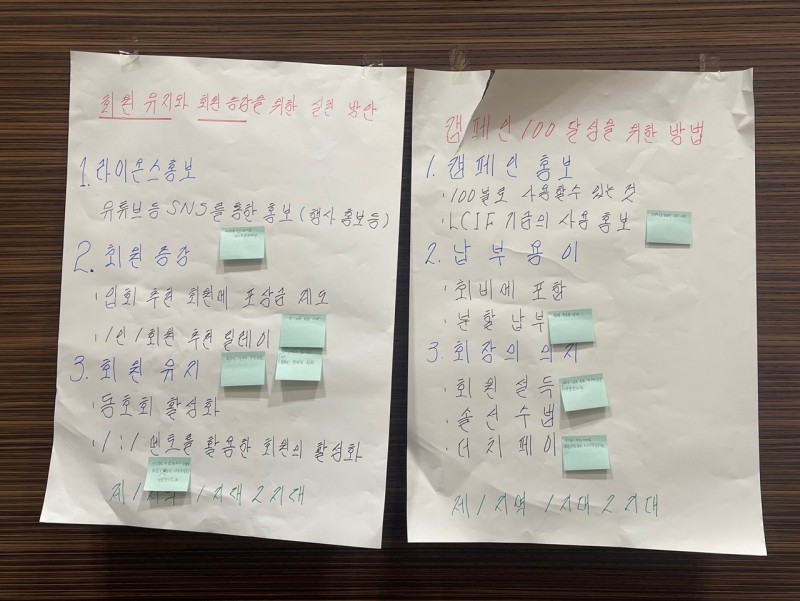 회원 유지와 회원 증강을 위한 실천 방안
1. 라이온스홍보
유튜브등 SNS를 통한 홍보 (행사 홍보등)
2. 회원 증강
· 입회 추천 회원에 포상금 제도
· 1인 1회원 추천 릴레이
3. 회원 유지
· 동호회 활성화
· 1:1 멘토를 활용한 회원의 활성화
제1지역 1지대 2지대
캠페인 100 달성을 위한 방법
1. 캠페인 홍보
· 100불로 사용할수 있는 것
· LCIF 기금의 사용 홍보
2. 납부용이
· 회비에 포함
· 분할 납부
3. 회장의 의지
· 회원 설득
· 솔선수범
· 더치페이
제1지역 1지대 2지대